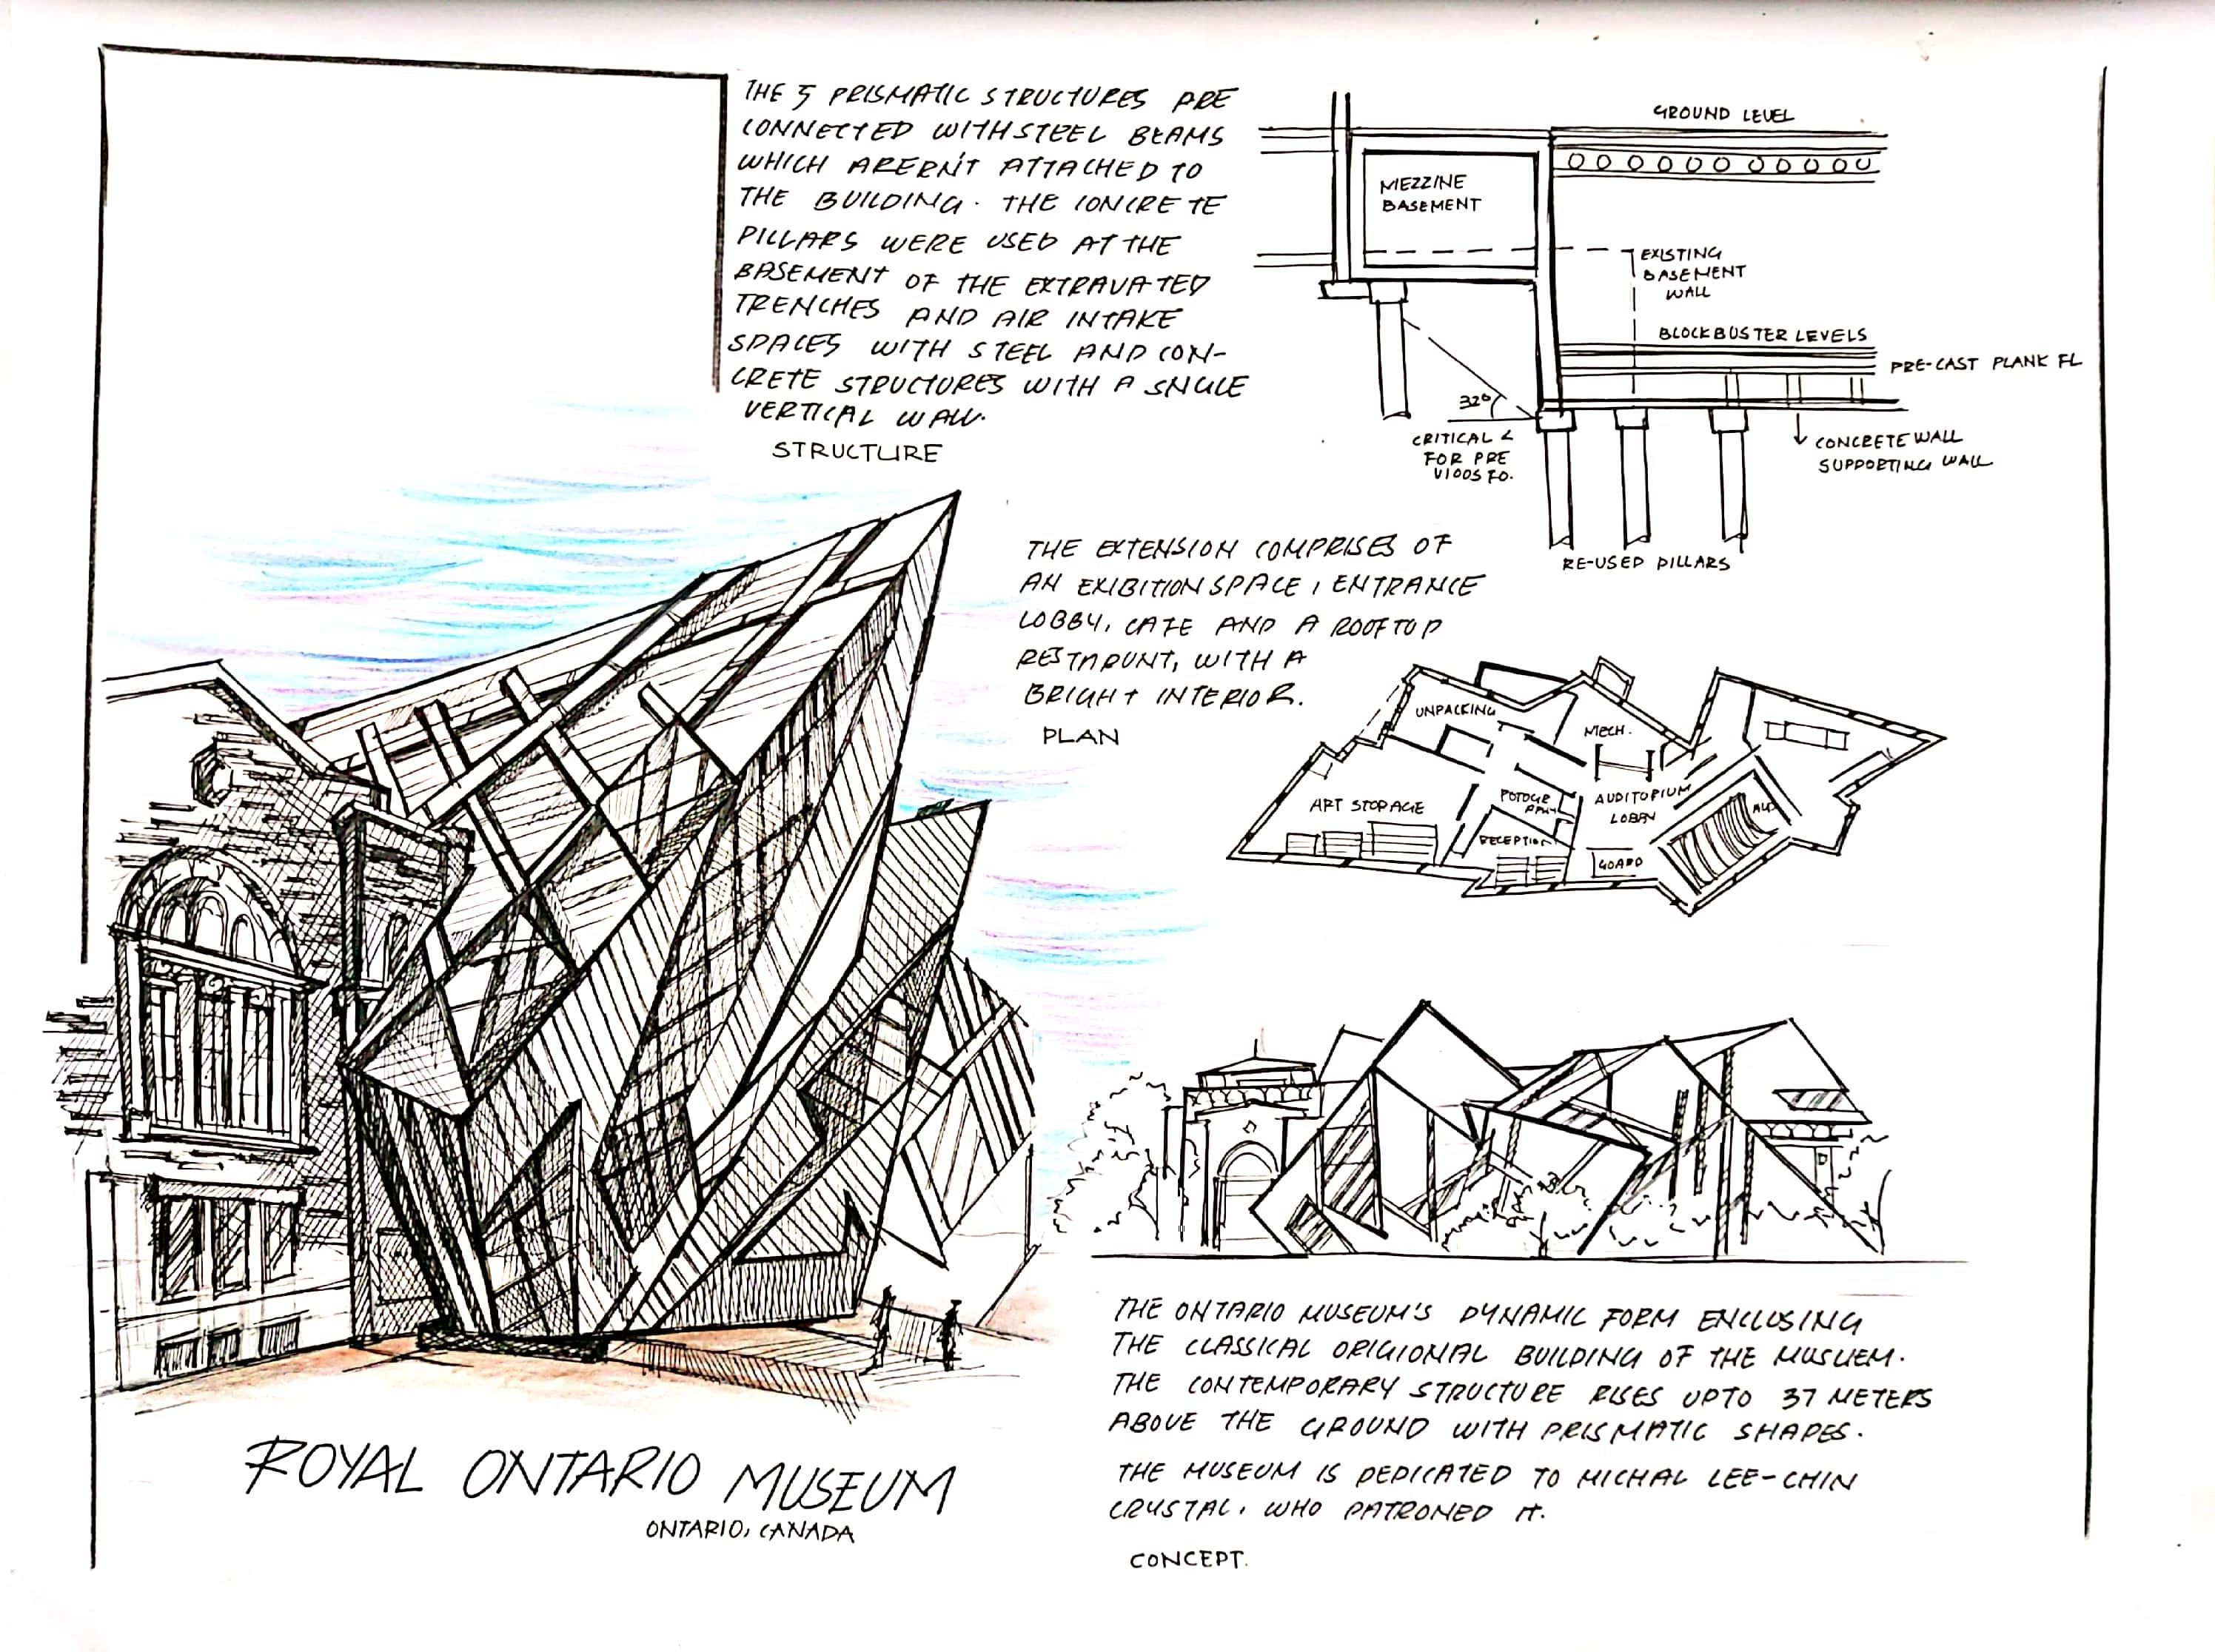 THE 5 PRISMATIC STRUCTURES ARE
CONNECTED WITH STEEL BEAMS
WHICH ARERN'T ATTACHED TO
THE BUILDING. THE CONCRETE
PILLARS WERE USED AT THE
BASEMENT OF THE EXTRAVATED
TRENCHES AND AIR INTAKE
SPACES WITH STEEL AND CON-
CRETE STRUCTURES WITH A SNGLE
VERTICAL WALL.
STRUCTURE
GROUND LEVEL
MEZZINE
BASEMENT
EXISTING
BASEMENT
WALL
BLOCKBUSTER LEVELS
PRE-CAST PLANK FL
32°
CRITICAL ∠
FOR PRE
VIOOS FO.
CONCRETE WALL
SUPPORTING WALL
RE-USED PILLARS
THE EXTENSION COMPRISES OF
AN EXIBITION SPACE, ENTRANCE
LOBBY, CAFE AND A ROOFTOP
RESTARUNT, WITH A
BRIGHT INTERIOR.
PLAN
UNPACKING
MECH.
ART STORAGE
AUDITORIUM
LOBBY
RECEPTION
THE ONTARIO MUSEUM'S DYNAMIC FORM ENCLOSING
THE CLASSICAL ORIGIONAL BUILDING OF THE MUSUEM.
THE CONTEMPORARY STRUCTURE RISES UPTO 37 METERS
ABOVE THE GROUND WITH PRISMATIC SHAPES.
THE MUSEUM IS DEDICATED TO MICHAL LEE-CHIN
CRUSTAL, WHO PATRONED IT.
CONCEPT.
ROYAL ONTARIO MUSEUM
ONTARIO, CANADA